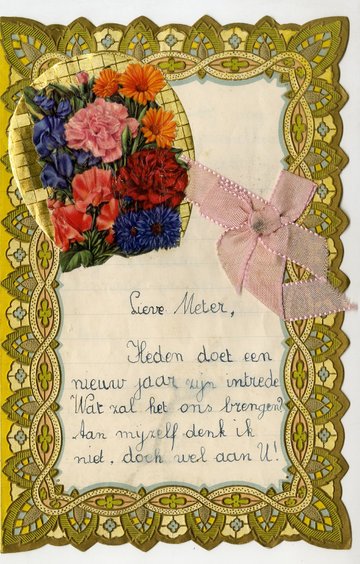 Lieve Meter,
Heden doet een
nieuw jaar zijn intrede
Wat zal het ons brengen?
Aan myzelf denk ik
niet, doch wel aan U!